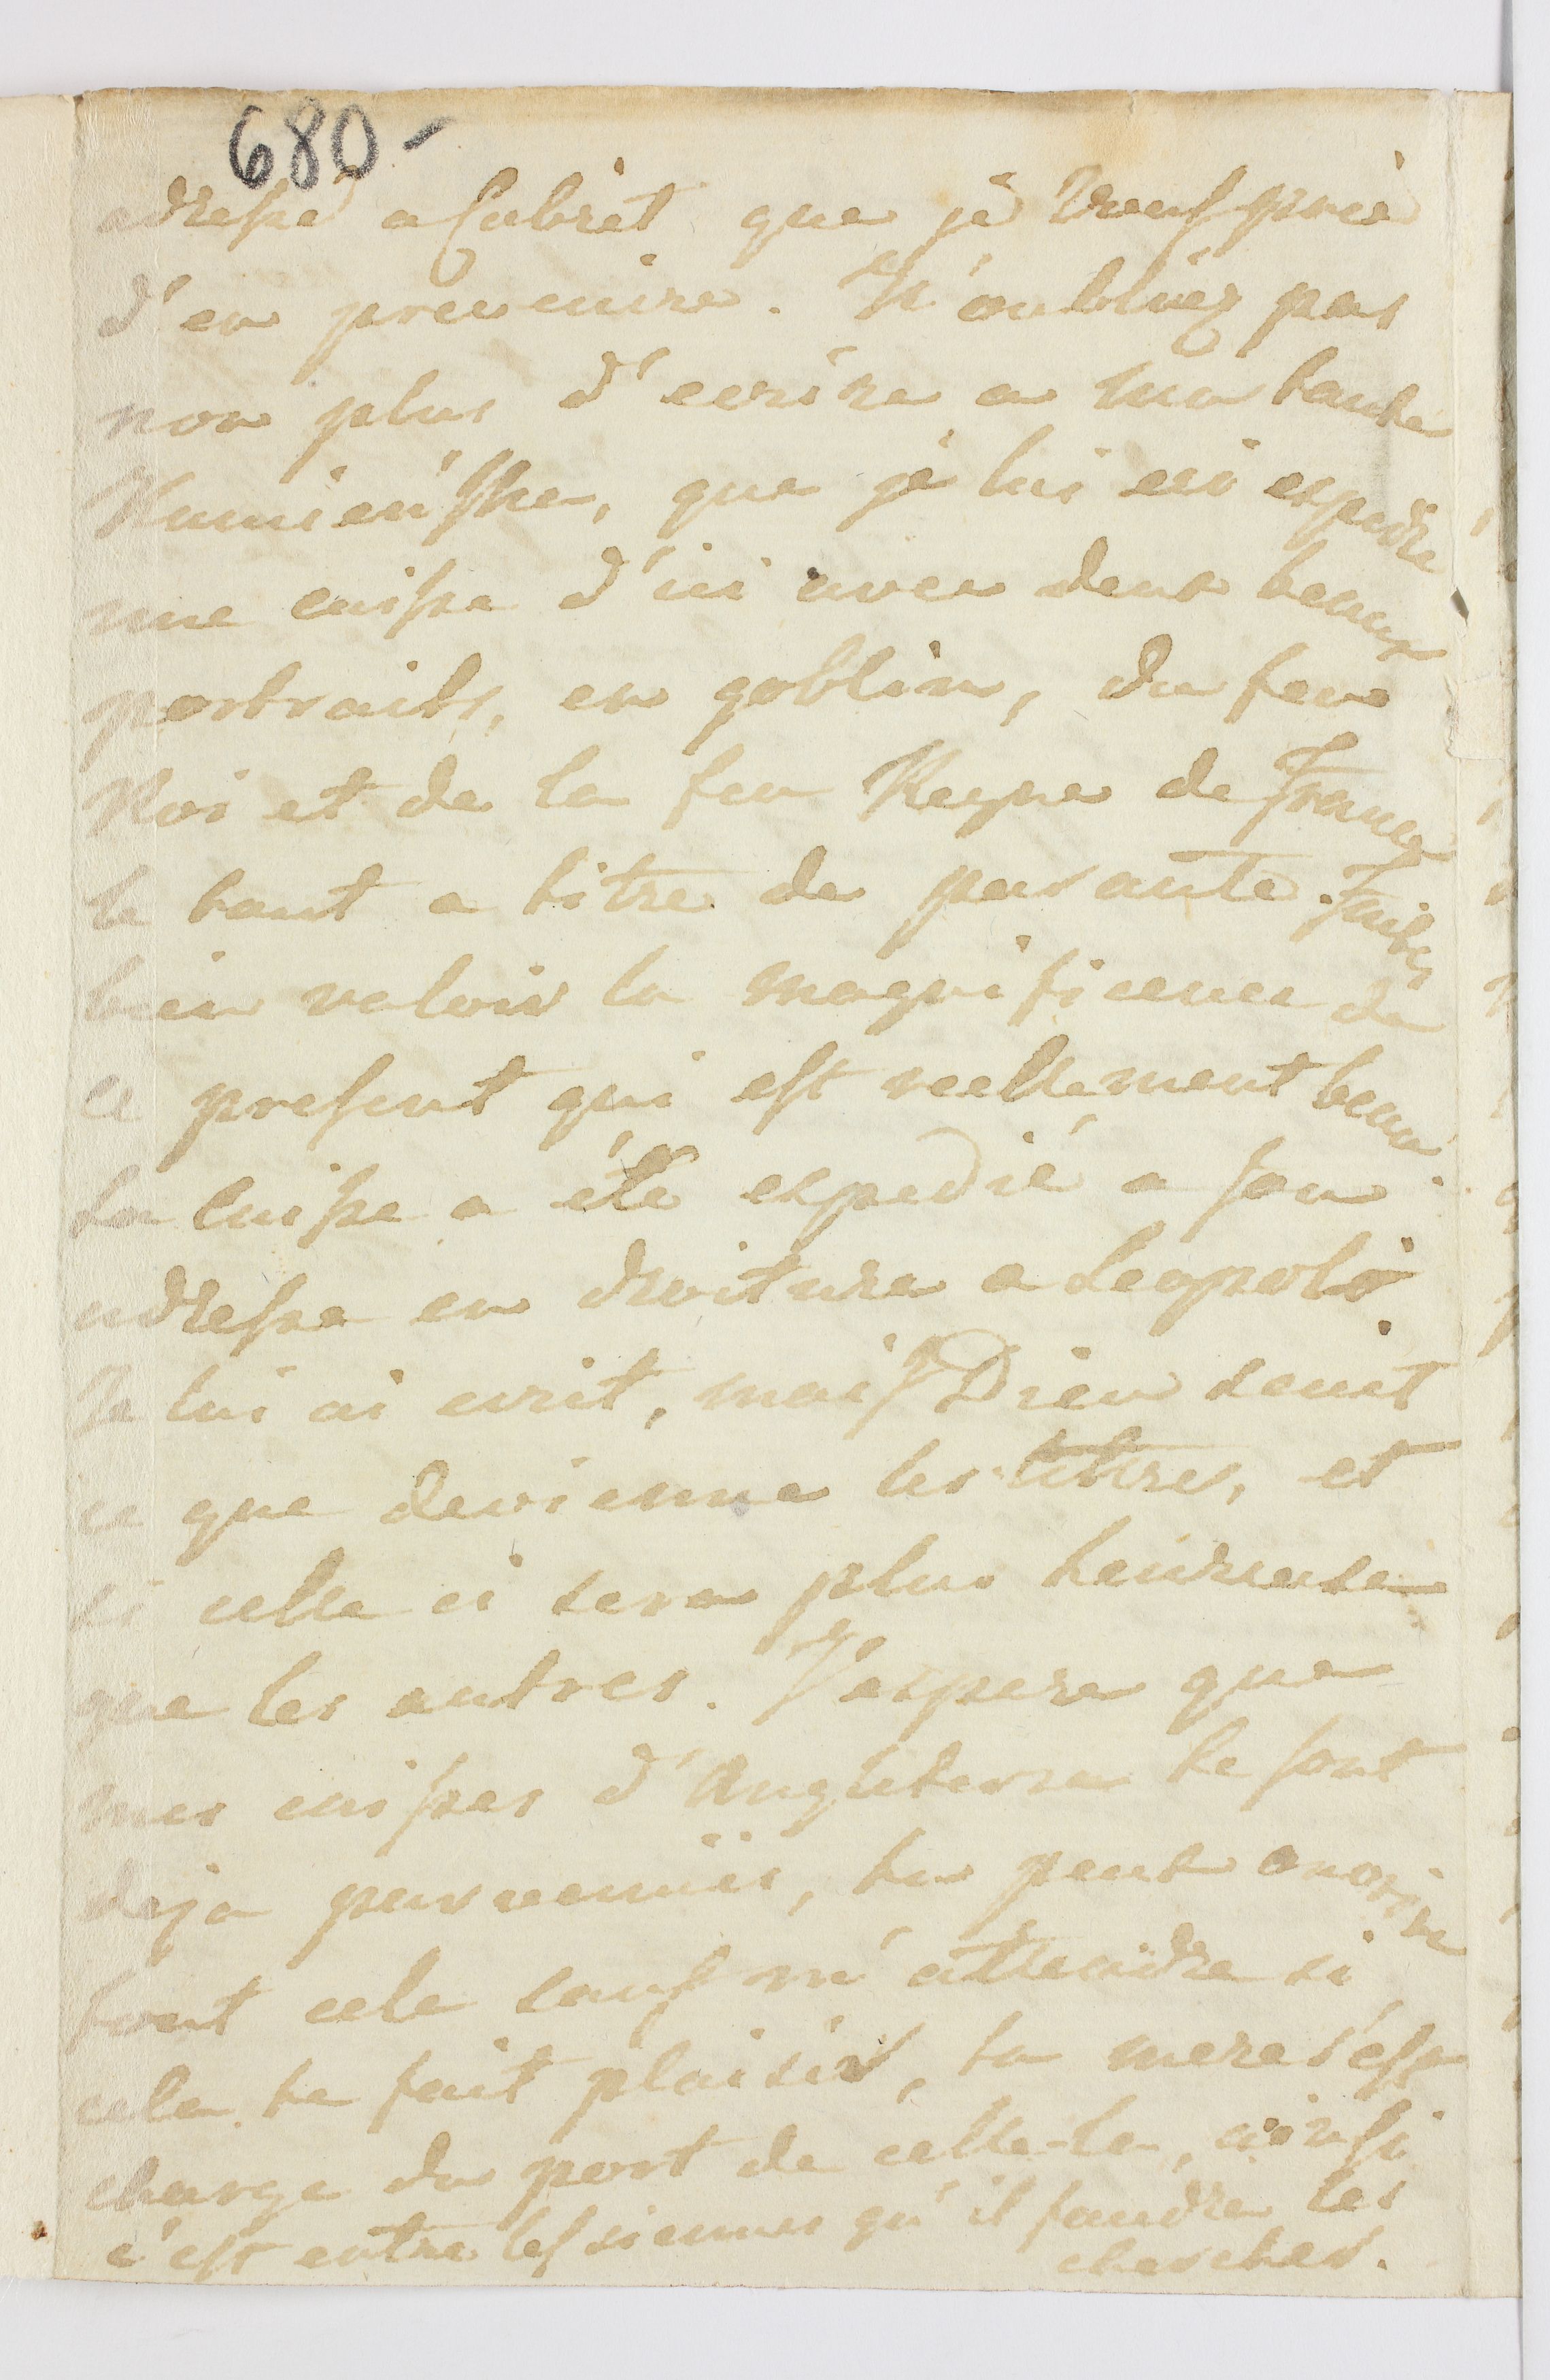 680-
adresse a Cabrit que je vous prie
d'en prevenire. N'oubliéz pas
non plus d'ecrire a ma tante
Humieńska, que je lui ai expedié
une caisse d'ici avec deux beaux
portraits, en goblin, du feu
Roi et de la feu Reyne de France
le tout a titre de parante. Faites
bien valoir la magnificence de
ce present qui est reellement beau.
La Caisse a été expedié a son
adresse en droiture a Leopold.
Je lui ai ecrit, mais Dieu scait
ce que devienne les lettres, et
si celle ci sera plus heureuse
que les autres. J'espere que
mes caisses d'Angleterre te sont
deja parvenuës, tu peut ouvrire
tout cela sans m'attendre si
cela te fait plaisir, ta mere s'est
charge du port de celle-la, ainsi
c'est entre les siennes qu'il faudra les
chercher.